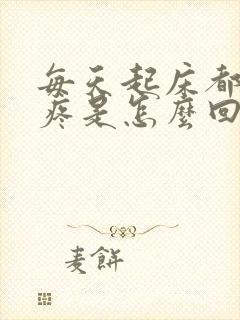 每天起床都
疼是怎麼回
麦餅